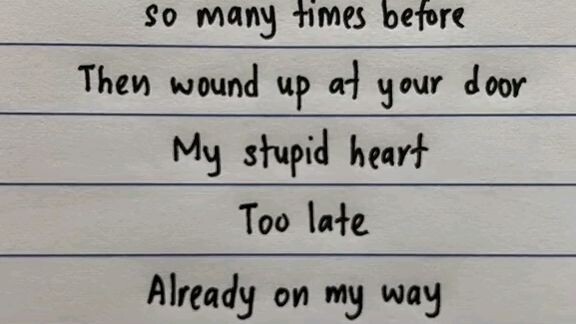 so many times before
Then wound up at your door
My stupid heart
Too late
Already on my way